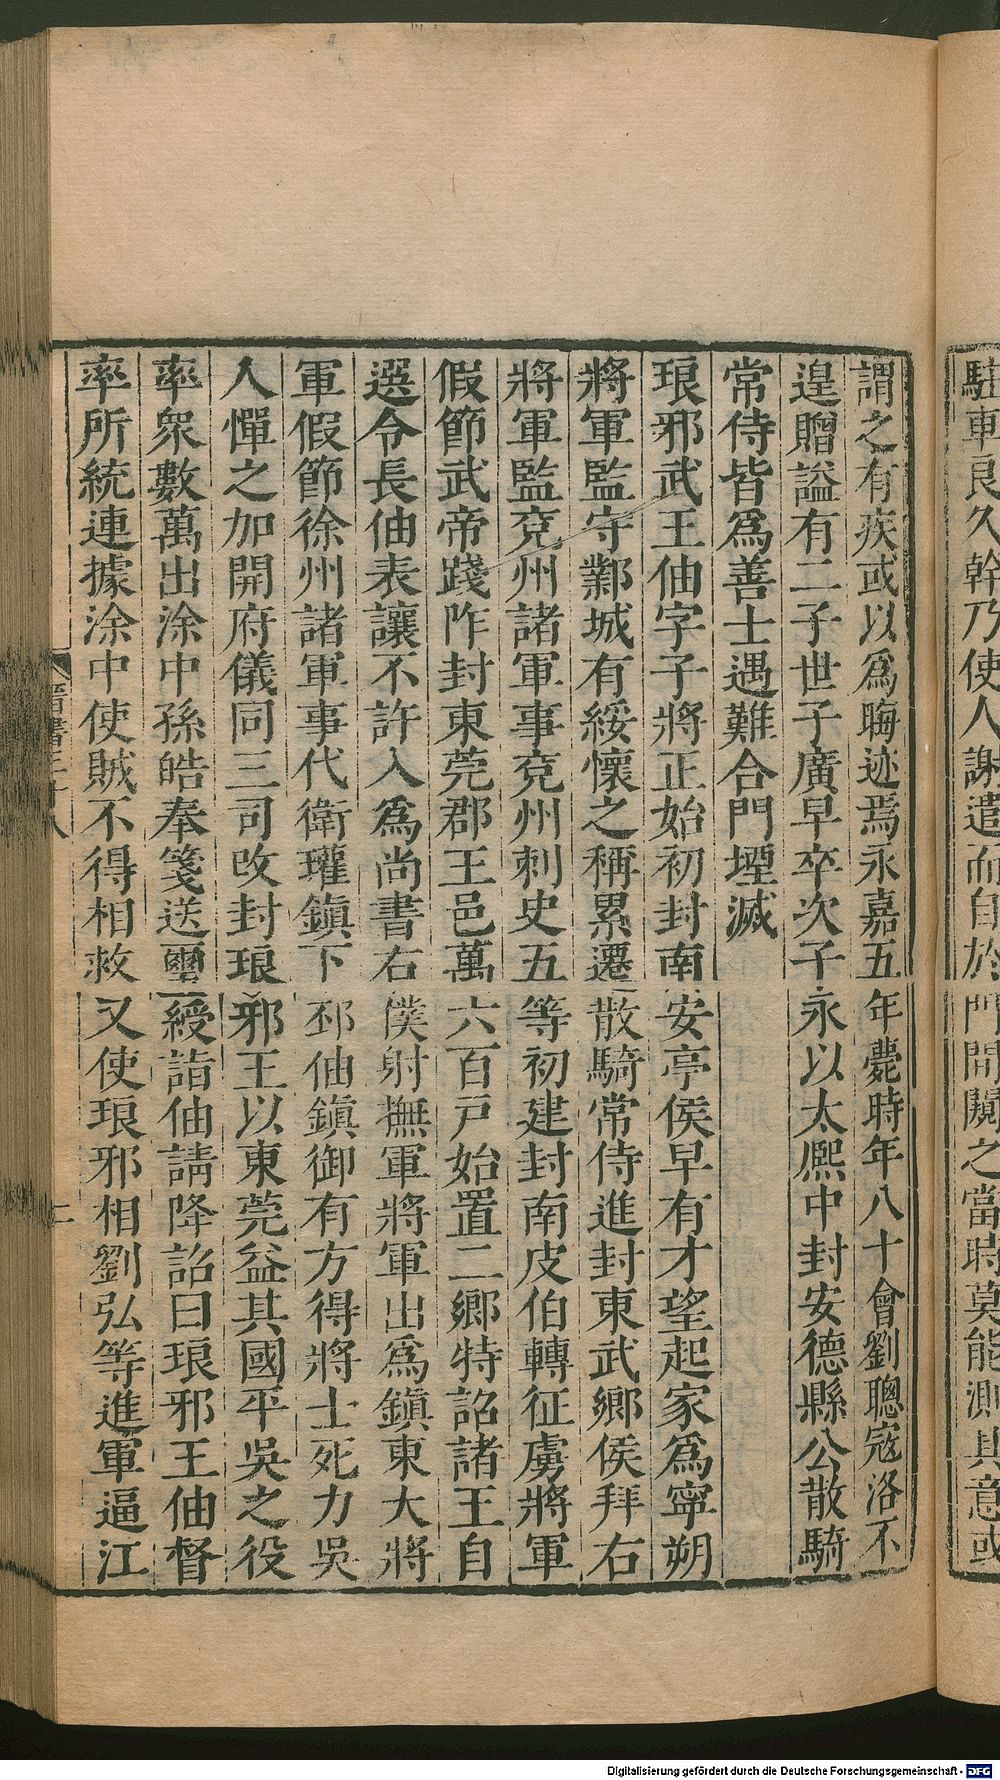 駐車良久幹乃使人謝遣而自於門間闚之當時莫能測其意或
謂之有疾或以爲晦迹焉永嘉五年薨時年八十會劉聰寇洛不
遑贈謚有二子世子廣早卒次子永以太熈中封安德縣公散騎
常侍皆爲善士遇難合門堙滅
琅邪武王伷字子將正始初封南安亭侯早有才望起家爲寧朔
將軍監守鄴城有綏懷之稱累遷散騎常侍進封東武鄉侯拜右
將軍監兗州諸軍事兗州刺史五等初建封南皮伯轉征虜將軍
假節武帝踐阼封東莞郡王邑萬六百戸始置二鄉特詔諸王自
選令長伷表讓不許入爲尚書右僕射撫軍將軍出爲鎮東大將
軍假節徐州諸軍事代衛瓘鎮下邳伷鎮御有方得將士死力吳
人憚之加開府儀同三司改封琅邪王以東莞益其國平吳之役
率衆數萬出涂中孫皓奉箋送璽綬詣伷請降詔曰琅邪王伷督
率所統連據涂中使賊不得相救又使琅邪相劉弘等進軍逼江
晉書三十八
二
Digitalisierung gefördert durch die Deutsche Forschungsgemeinschaft - DFG